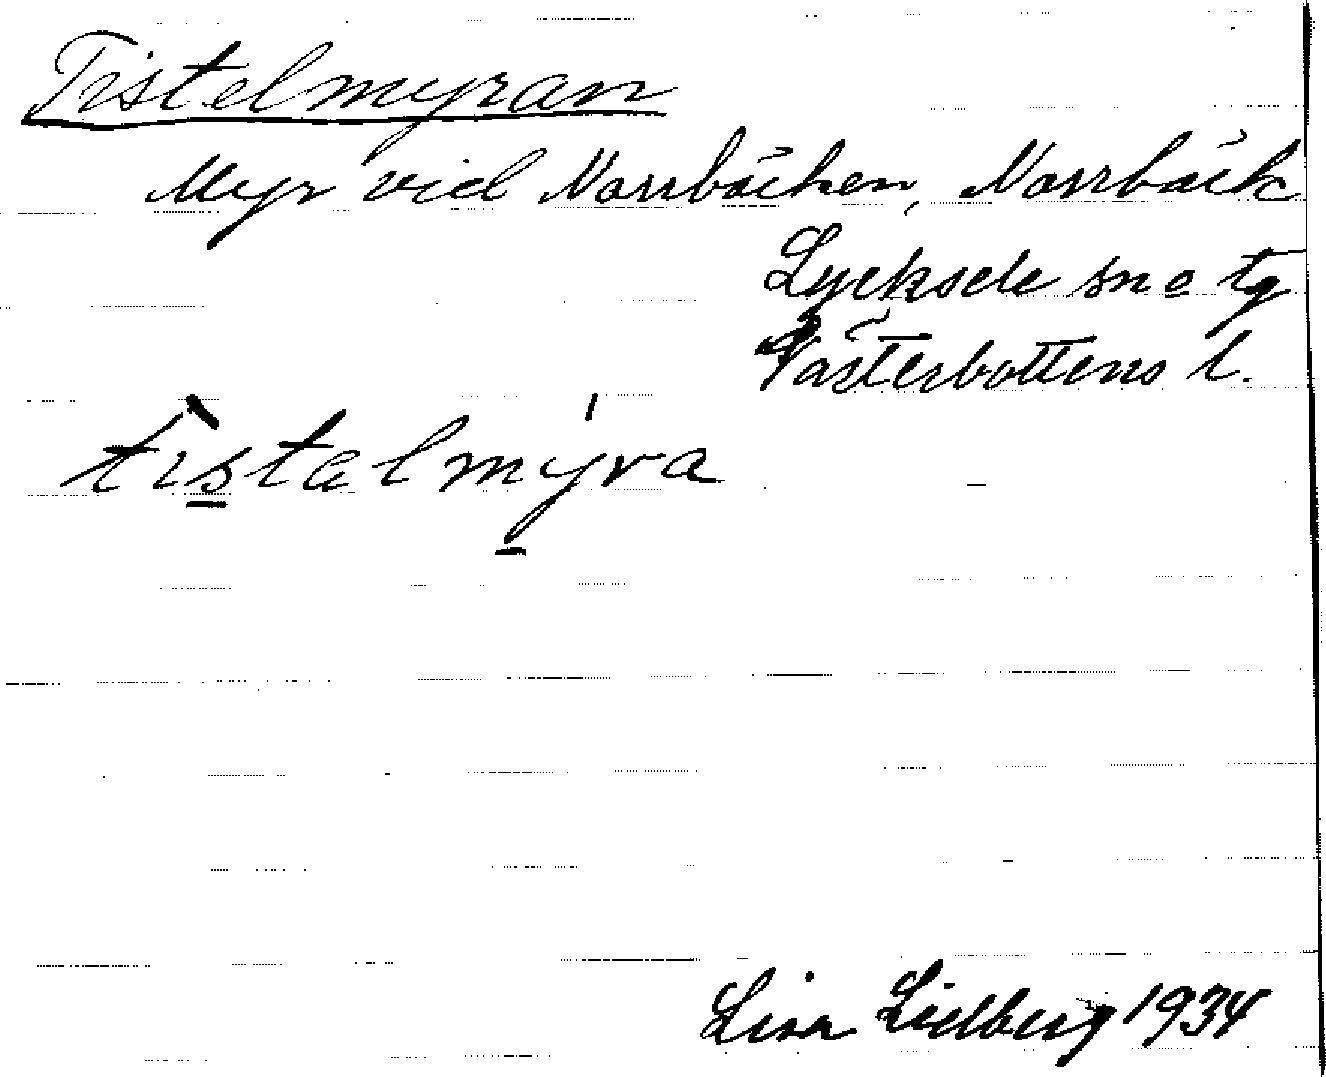 Tistelmyran
Myr vid Norrbäcken, Norrbäck
Lycksele sn o tg
Västerbottens l.
tìstalmýra
Lisa Lidberg 1934